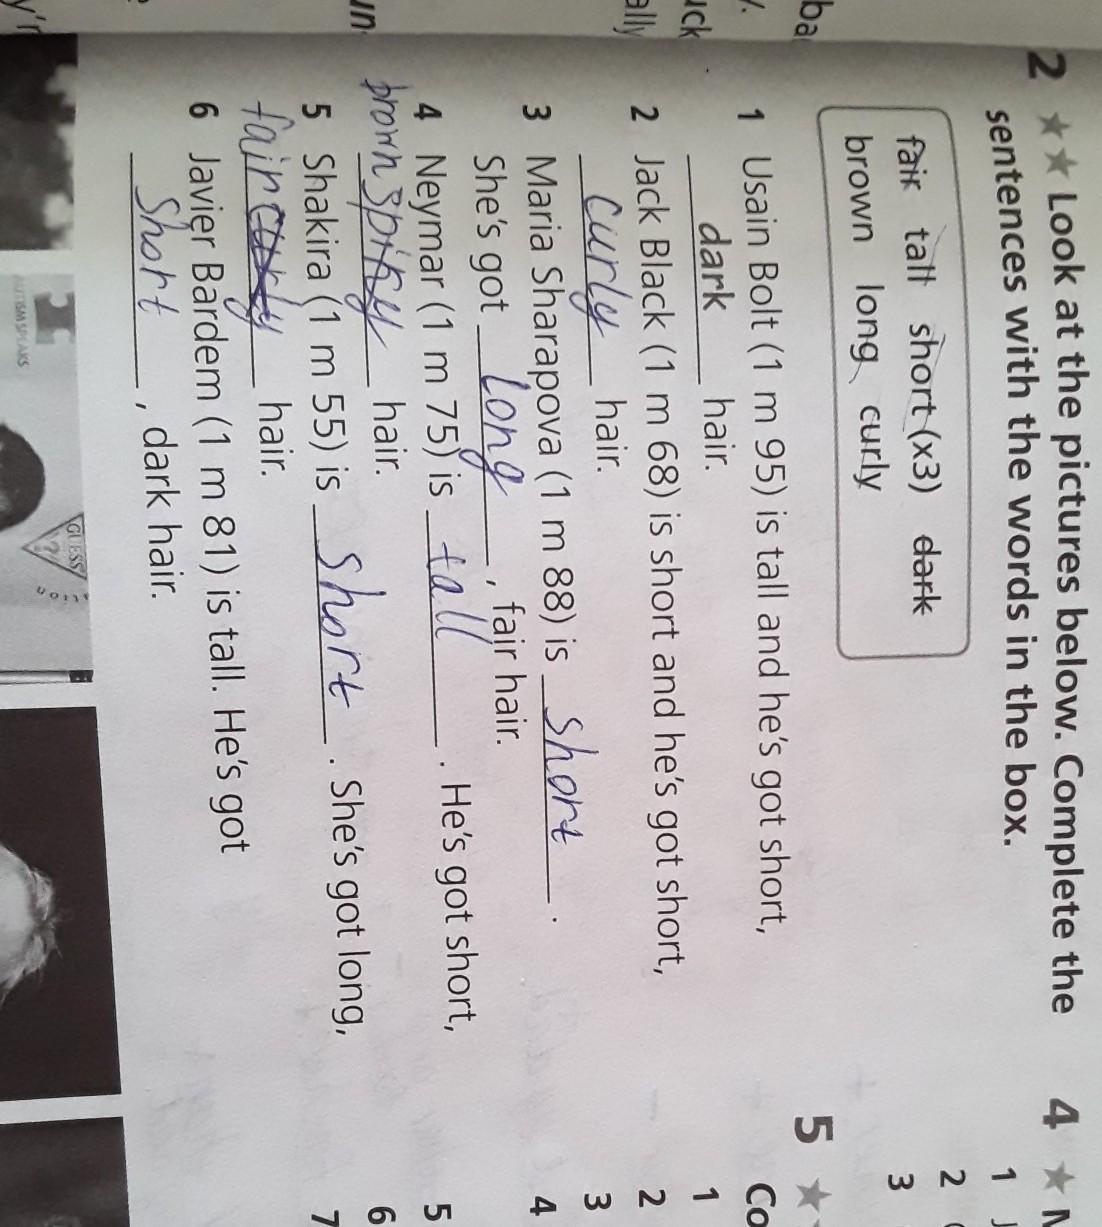 2 ★★ Look at the pictures below. Complete the
sentences with the words in the box.
fair tall short (x3) dark
brown long curly
1 Usain Bolt (1 m 95) is tall and he's got short,
dark hair.
2 Jack Black (1 m 68) is short and he's got short,
curly hair.
3 Maria Sharapova (1 m 88) is short.
She's got long, fair hair.
4 Neymar (1 m 75) is tall. He's got short,
brown spiky hair.
5 Shakira (1 m 55) is short. She's got long,
fair curly hair.
6 Javier Bardem (1 m 81) is tall. He's got
short, dark hair.
AUTISM SPEAKS
GUESS
?
ba
y.
uck
ally
un
y'r
4 ★
1
2
3
5 ★
Co
1
2
3
4
5
6
7